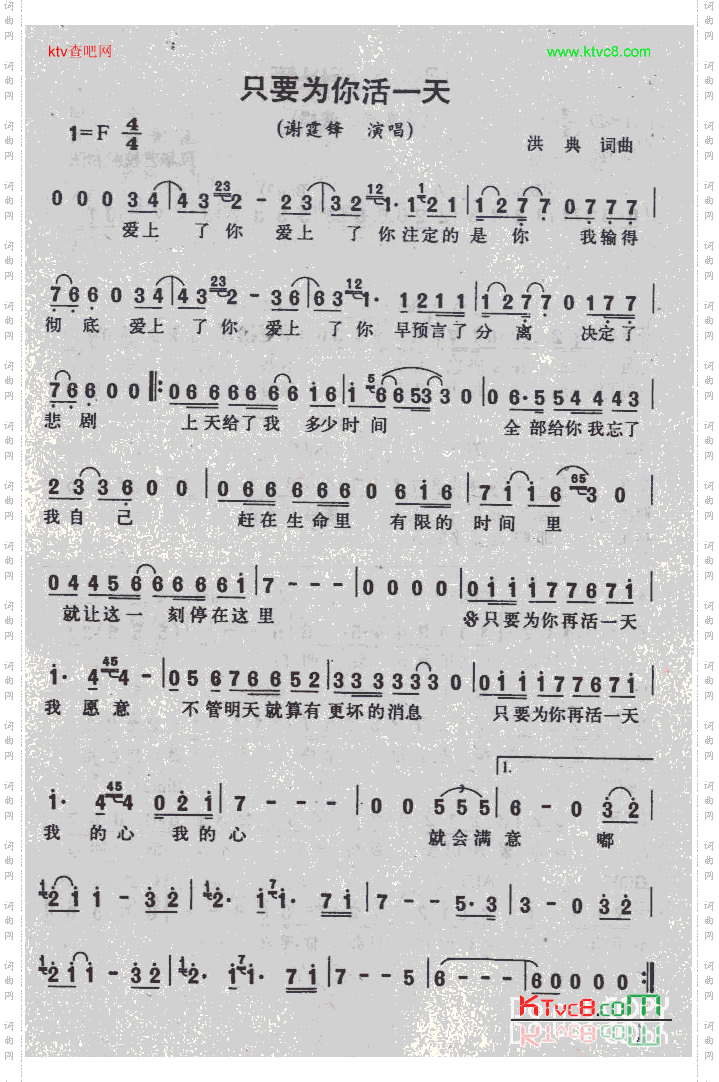 ktv查吧网 www.ktvc8.com
只要为你活一天
1=F 4/4 (谢霆锋 演唱)
洪典 词曲
0 0 0 3 4 | 4 3 23 2 - 2 3 | 3 2 12 1· 1 1 2 1 | 1 2 7 7 0 7 7 7 |
爱上 了你 爱上 了你注定的 是 你 我输得
7 6 6 0 3 4 | 4 3 23 2 - 3 6 | 6 3 12 1· 1 2 1 1 | 1 2 7 7 0 1 7 7 |
彻底 爱上 了你 爱上 了你 早预言了 分 离 决定了
7 6 6 0 0 ‖: 0 6 6 6 6 6 6 i 6 | i 5 6 6 5 3 3 0 | 0 6· 5 5 4 4 4 3 |
悲剧 上天给了我 多少时间 全部给你我忘了
2 3 3 6 0 0 | 0 6 6 6 6 6 6 0 6 i 6 | 7 i i 6 65 3 0
我自己 赶在生命里 有限的 时间 里
0 4 4 5 6 6 6 6 6 i | 7 - - - | 0 0 0 0 | 0 i i i 7 7 6 7 i |
就让这一 刻停在这里 𝄋只要为你再活一天
i· 4 45 4 - | 0 5 6 7 6 6 5 2 | 3 3 3 3 3 3 3 0 | 0 i i i 7 7 6 7 i |
我 愿意 不管明天就算有 更坏的消息 只要为你再活一天
i· 4 45 4 0 2 i | 7 - - - | 0 0 5 5 5 | 1. 6 - 0 3 2 |
我 的心 我的心 就会满意 嘟
1 2 i i - 3 2 | 1 2· i 7 i· 7 i | 7 - - 5· 3 | 3 - 0 3 2 |
1 2 i i - 3 2 | 1 2· i 7 i· 7 i | 7 - - 5 | 6 - - - | 6 0 0 0 0 :‖
KTvc8.com
词曲网
词曲网
词曲网
词曲网
词曲网
词曲网
词曲网
词曲网
词曲网